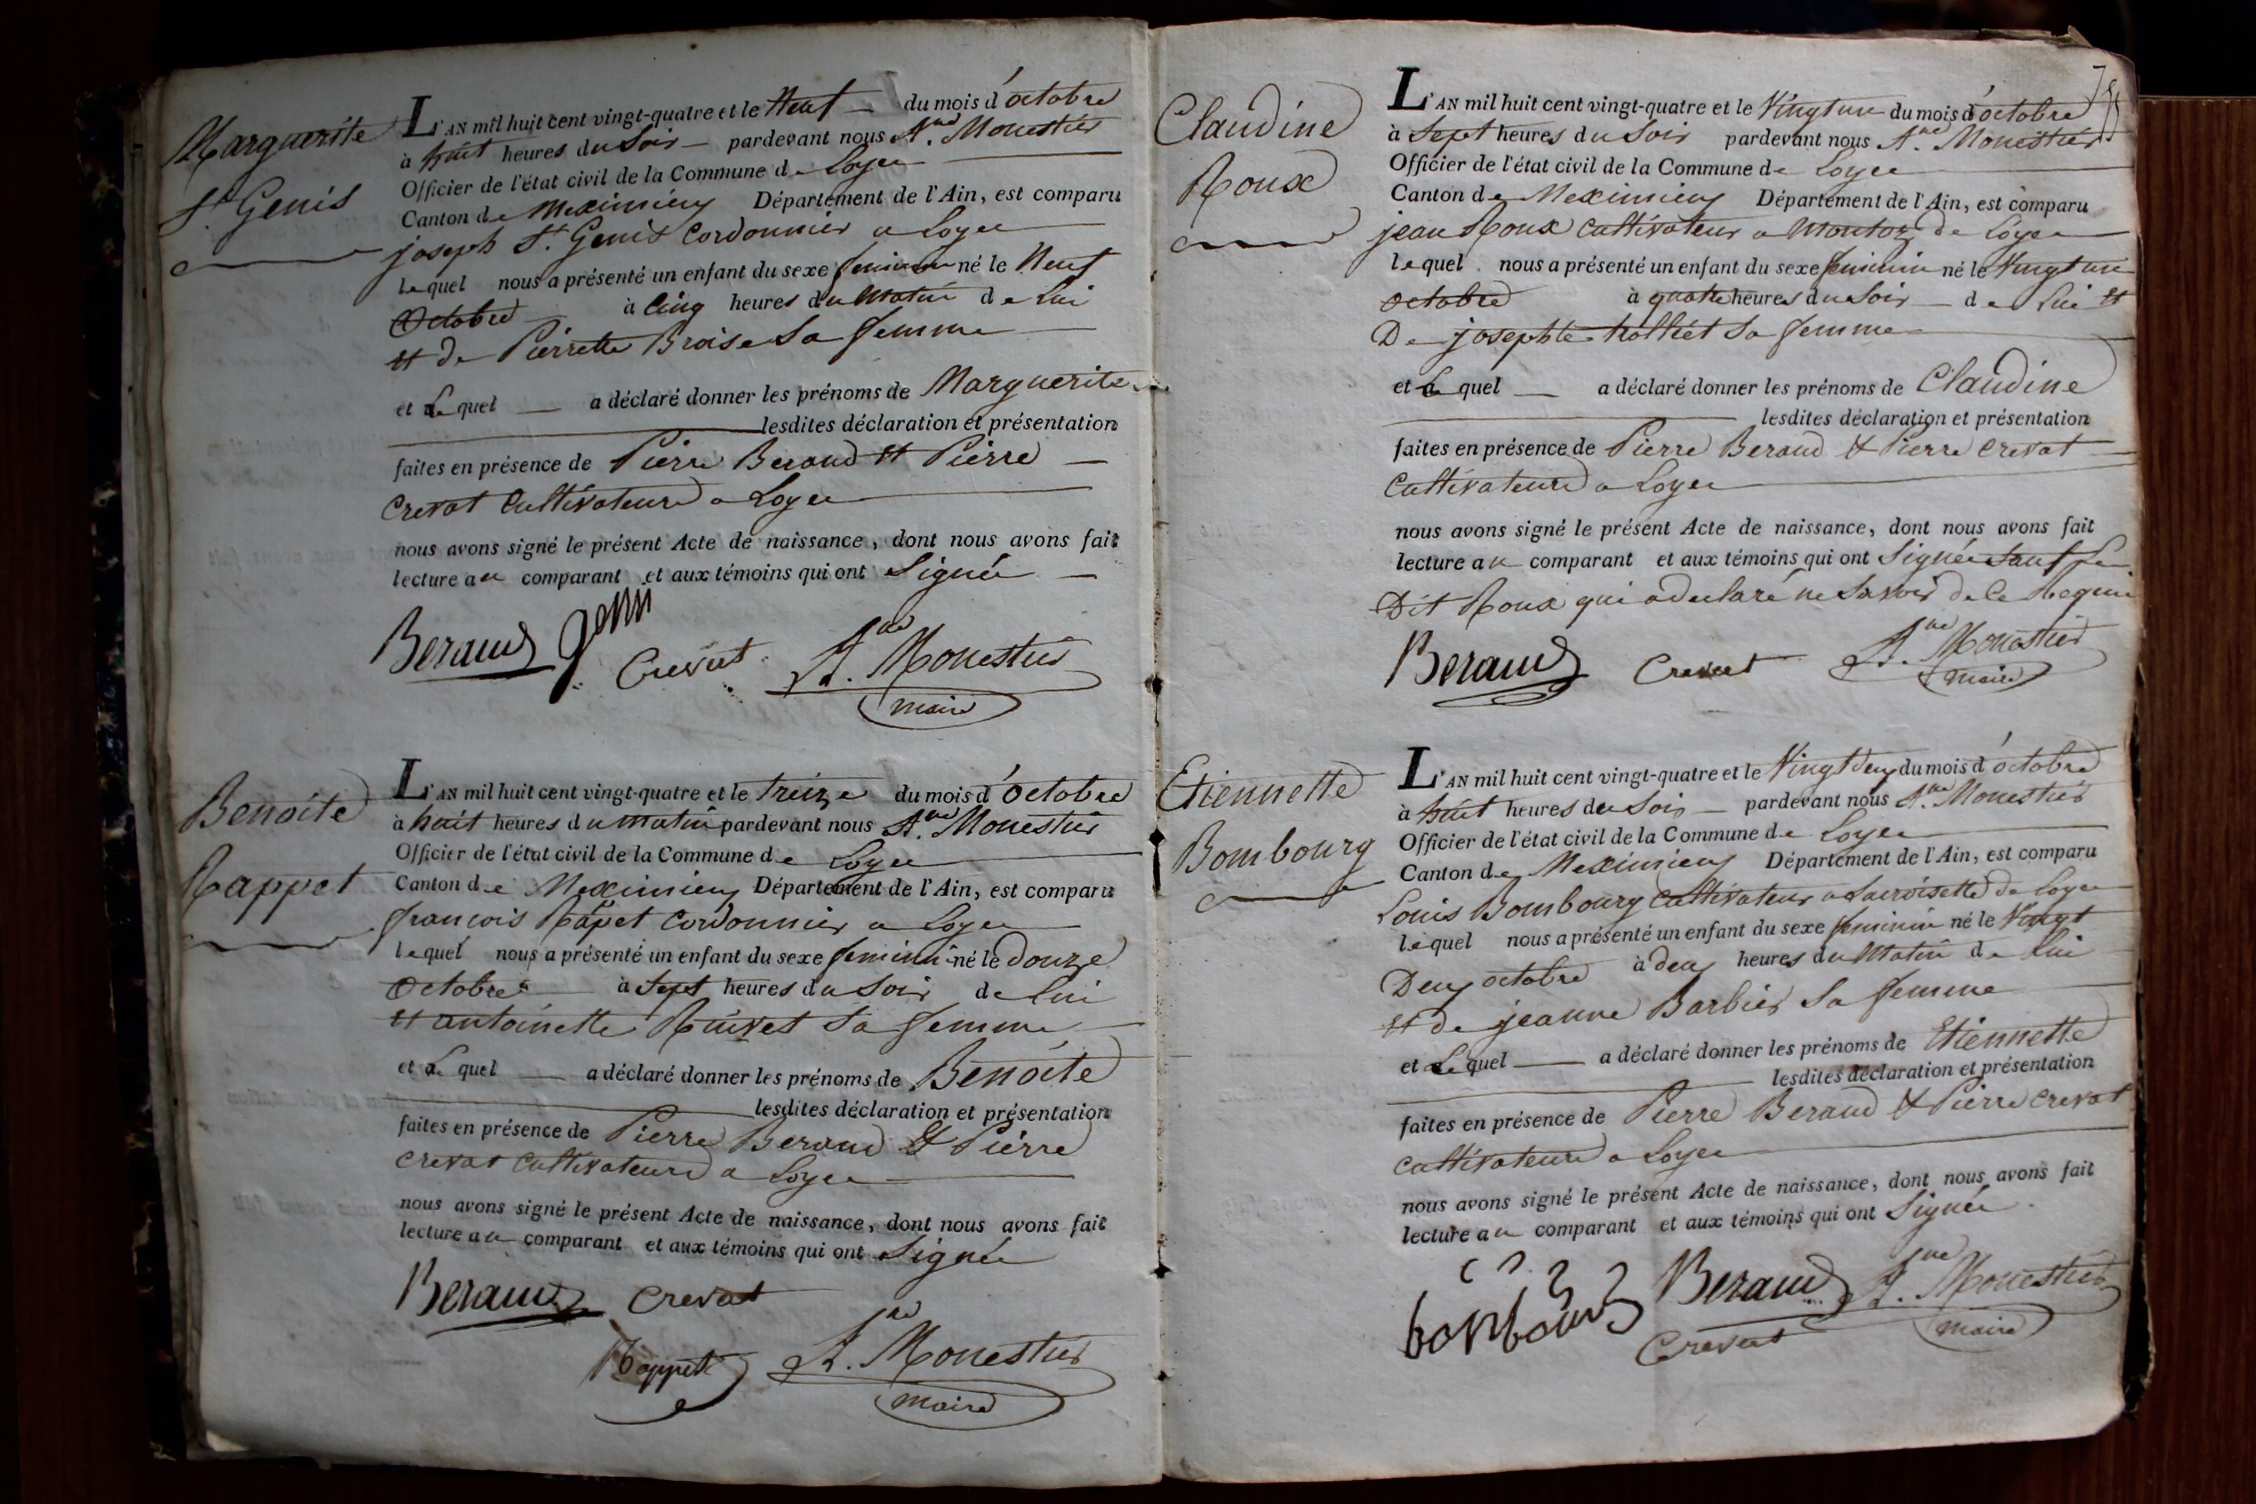 Marguerite
St. Genis
L'AN mil huit cent vingt-quatre et le Neuf du mois d'octobre
à huit heures du Soir pardevant nous Ane. Monestier
Officier de l'état civil de la Commune de Loyes
Canton de Meximieux Département de l'Ain, est comparu
joseph St. Genis Cordonnier a Loyes
lequel nous a présenté un enfant du sexe feminin né le Neuf
Octobre à Cinq heures du Matin de Lui
et de Pierrette Broise Sa femme
et Le quel a déclaré donner les prénoms de Marguerite
lesdites déclaration et présentation
faites en présence de Pierre Beraud et Pierre
Crevat Cultivateurs a Loyes
nous avons signé le présent Acte de naissance, dont nous avons fait
lecture au comparant et aux témoins qui ont Signés
Beraud genis
Crevat Ane. Monestier
maire
Benoite
Rappet
L'AN mil huit cent vingt-quatre et le treize du mois d'Octobre
à huit heures du matin pardevant nous Ane. Monestier
Officier de l'état civil de la Commune de Loyes
Canton de Meximieux Département de l'Ain, est comparu
françois Rapet Cordonnier a Loyes
lequel nous a présenté un enfant du sexe feminin né le douze
Octobre à Sept heures du Soir de Lui
et antoinette Ruivet Sa femme
et Le quel a déclaré donner les prénoms de Benoite
lesdites déclaration et présentation
faites en présence de Pierre Beraud & Pierre
Crevat Cultivateurs a Loyes
nous avons signé le présent Acte de naissance, dont nous avons fait
lecture au comparant et aux témoins qui ont Signés
Beraud Crevat
Rappet Ane. Monestier
maire
Claudine
Roux
L'AN mil huit cent vingt-quatre et le Vingt un du mois d'octobre
à Sept heures du Soir pardevant nous Ane. Monestier
Officier de l'état civil de la Commune de Loyes
Canton de Meximieux Département de l'Ain, est comparu
jean Roux Cultivateur a Montoz de Loyes
lequel nous a présenté un enfant du sexe feminin né le Vingt un
octobre à quatre heures du Soir de Lui et
De josephte Sa femme
et Le quel a déclaré donner les prénoms de Claudine
lesdites déclaration et présentation
faites en présence de Pierre Beraud & Pierre Crevat
Cultivateurs a Loyes
nous avons signé le présent Acte de naissance, dont nous avons fait
lecture au comparant et aux témoins qui ont Signés Sauf Le
Dit Roux qui a declaré ne Savoir de Ce Requis
Beraud Crevat Ane. Monestier
maire
Etiennette
Bombourg
L'AN mil huit cent vingt-quatre et le Vingt deux du mois d'octobre
à huit heures du Soir pardevant nous Ane. Monestier
Officier de l'état civil de la Commune de Loyes
Canton de Meximieux Département de l'Ain, est comparu
Louis Bombourg Cultivateur a Lacroisette de Loyes
lequel nous a présenté un enfant du sexe feminin né le Vingt
Deux octobre à deux heures du Matin de Lui
et de jeanne Barbier Sa femme
et Le quel a déclaré donner les prénoms de Etiennette
lesdites déclaration et présentation
faites en présence de Pierre Beraud & Pierre Crevat
Cultivateurs a Loyes
nous avons signé le présent Acte de naissance, dont nous avons fait
lecture au comparant et aux témoins qui ont Signés
bonbourg Beraud Ane. Monestier
Crevat maire